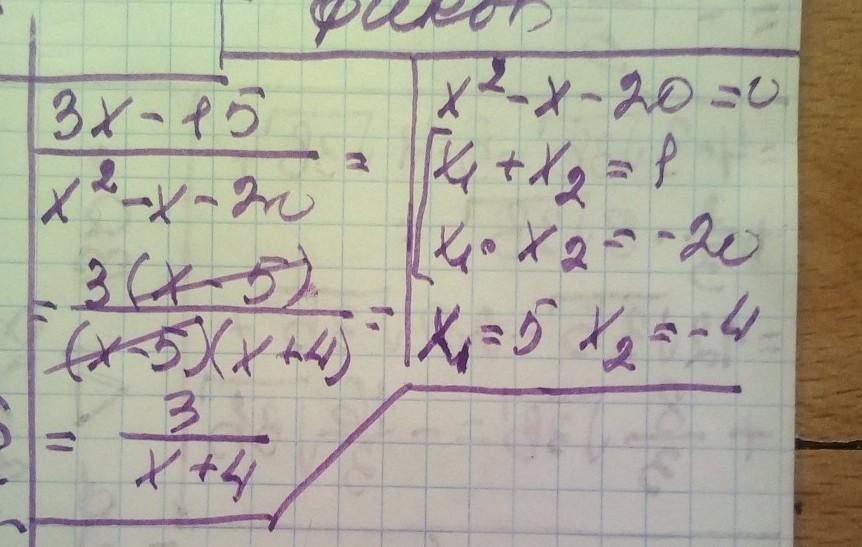 3x-15
x²-x-20 =
= 3(x-5)
(x-5)(x+4) =
= 3
x+4
x²-x-20=0
x₁+x₂=1
x₁·x₂=-20
x₁=5 x₂=-4